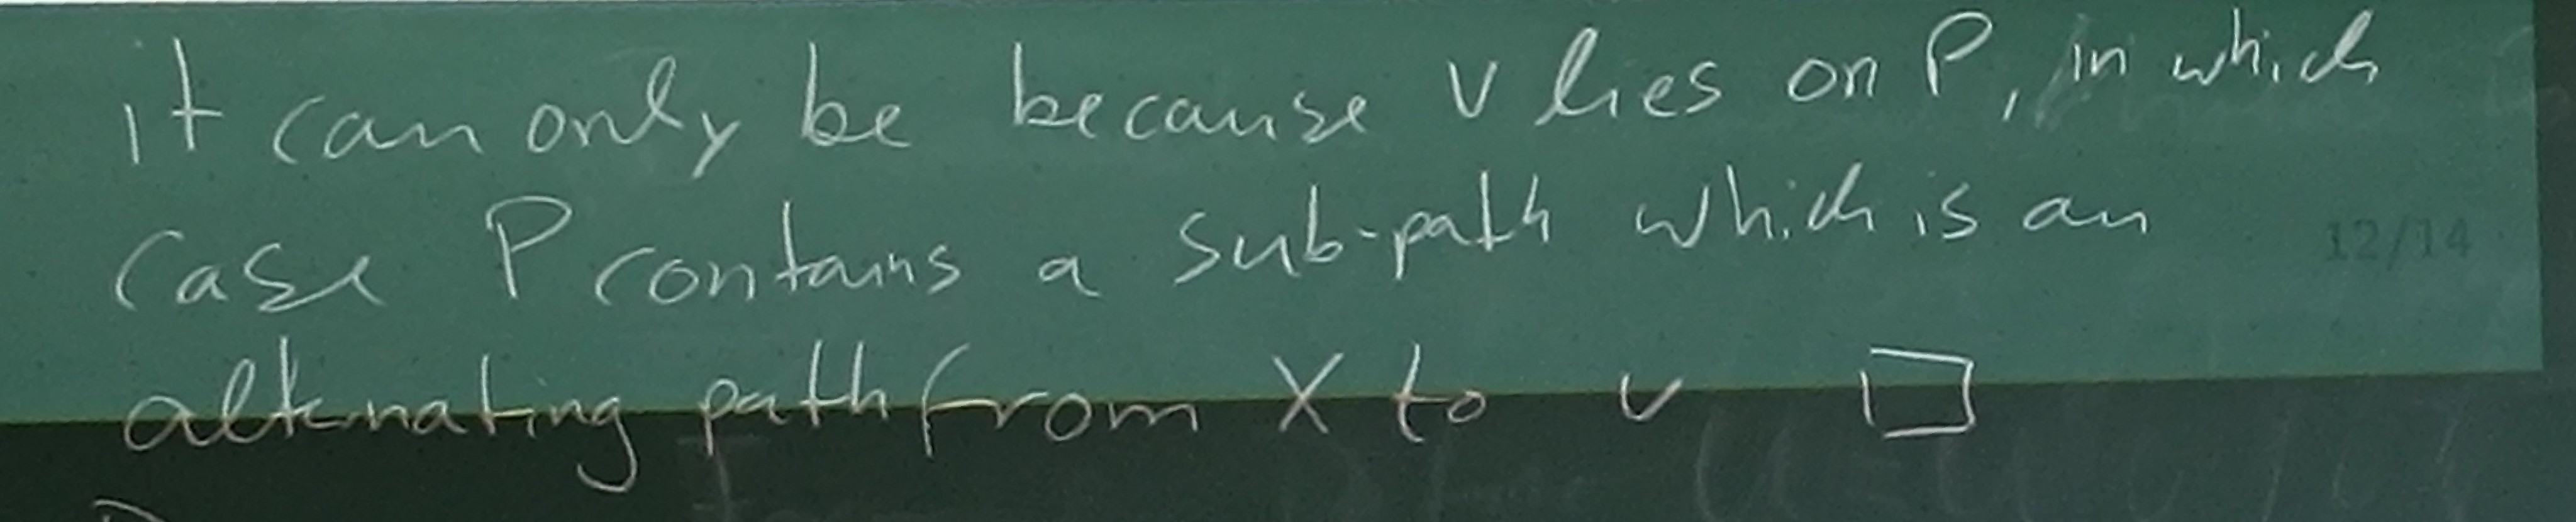 it can only be because v lies on P, in which
case P contains a sub-path which is an
12/14
alternating path from X to v □